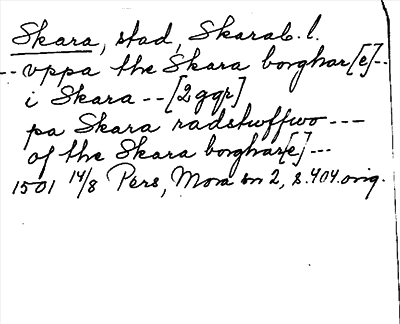 Skara, stad, Skarab. l.
-- vppa the Skara borghar[e]--
i Skara -- [2 ggr]
pa Skara radstwffwo ---
of the Skara borghar[e] ---
1501 14/8 Pers, Mora sn 2, s. 404. orig.